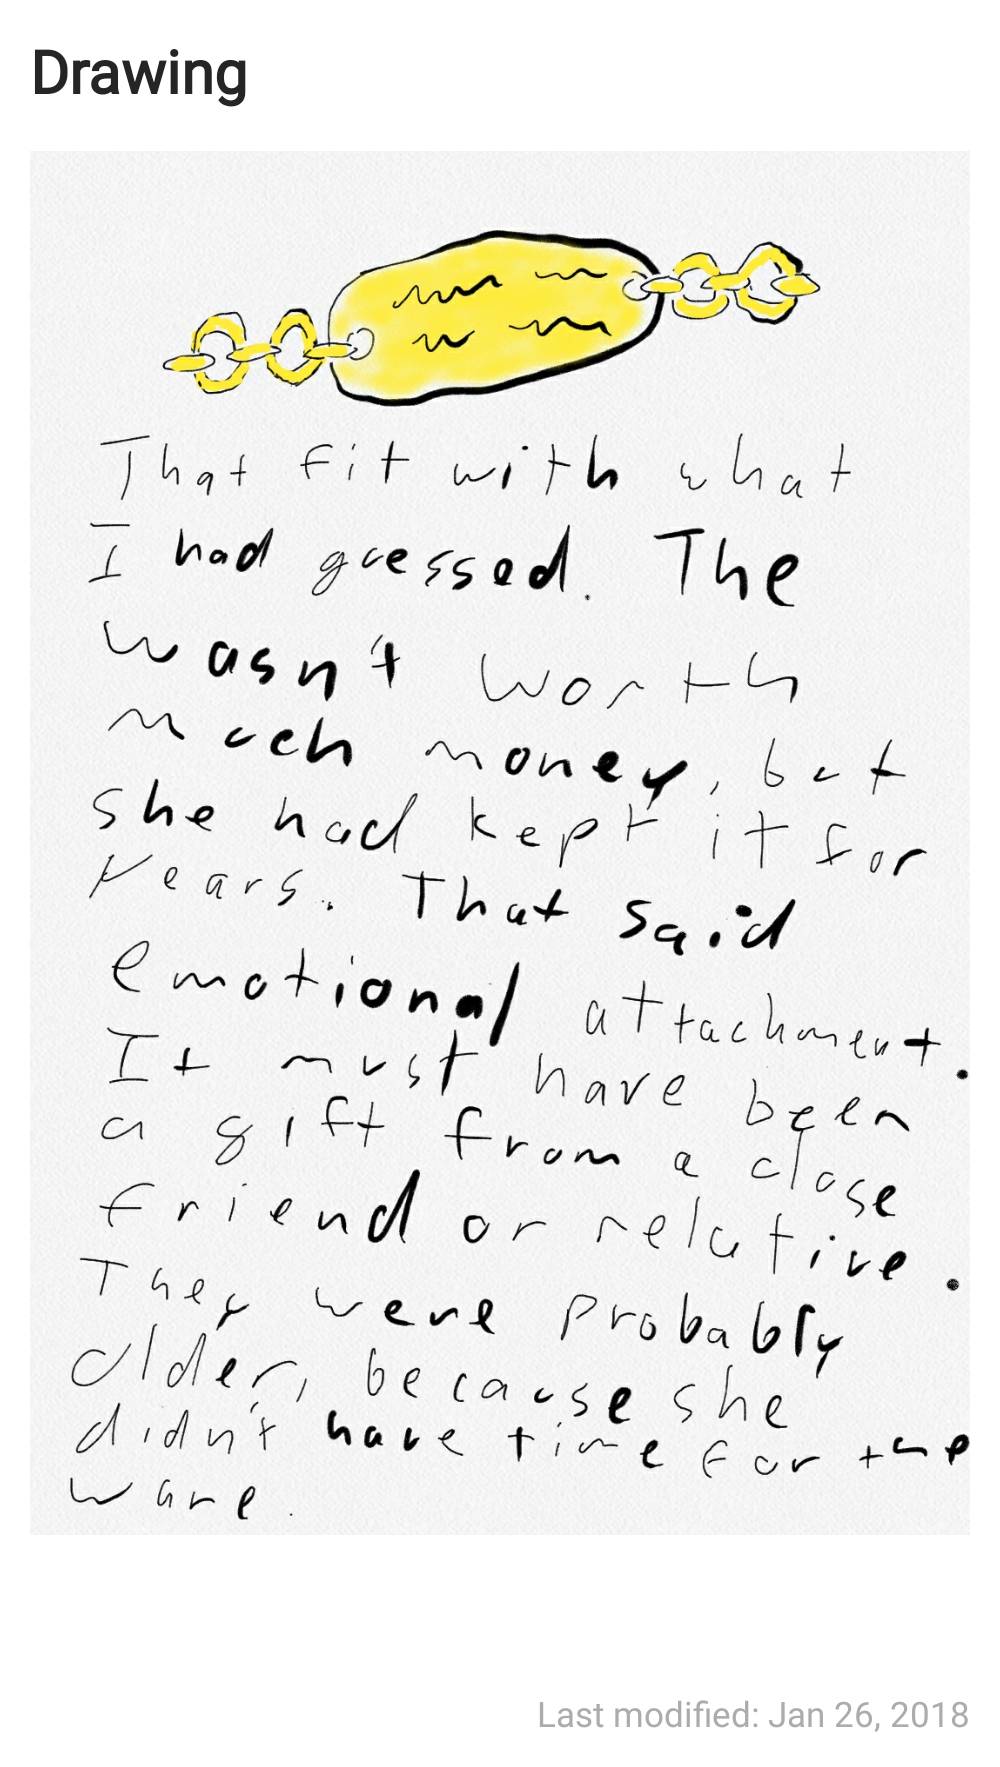 Drawing
That fit with what
I had guessed. The
wasn't worth
much money, but
she had kept it for
years. That said
emotional attachment.
It must have been
a gift from a close
friend or relative.
They were probably
older, because she
didn't have time for the
ware.
Last modified: Jan 26, 2018